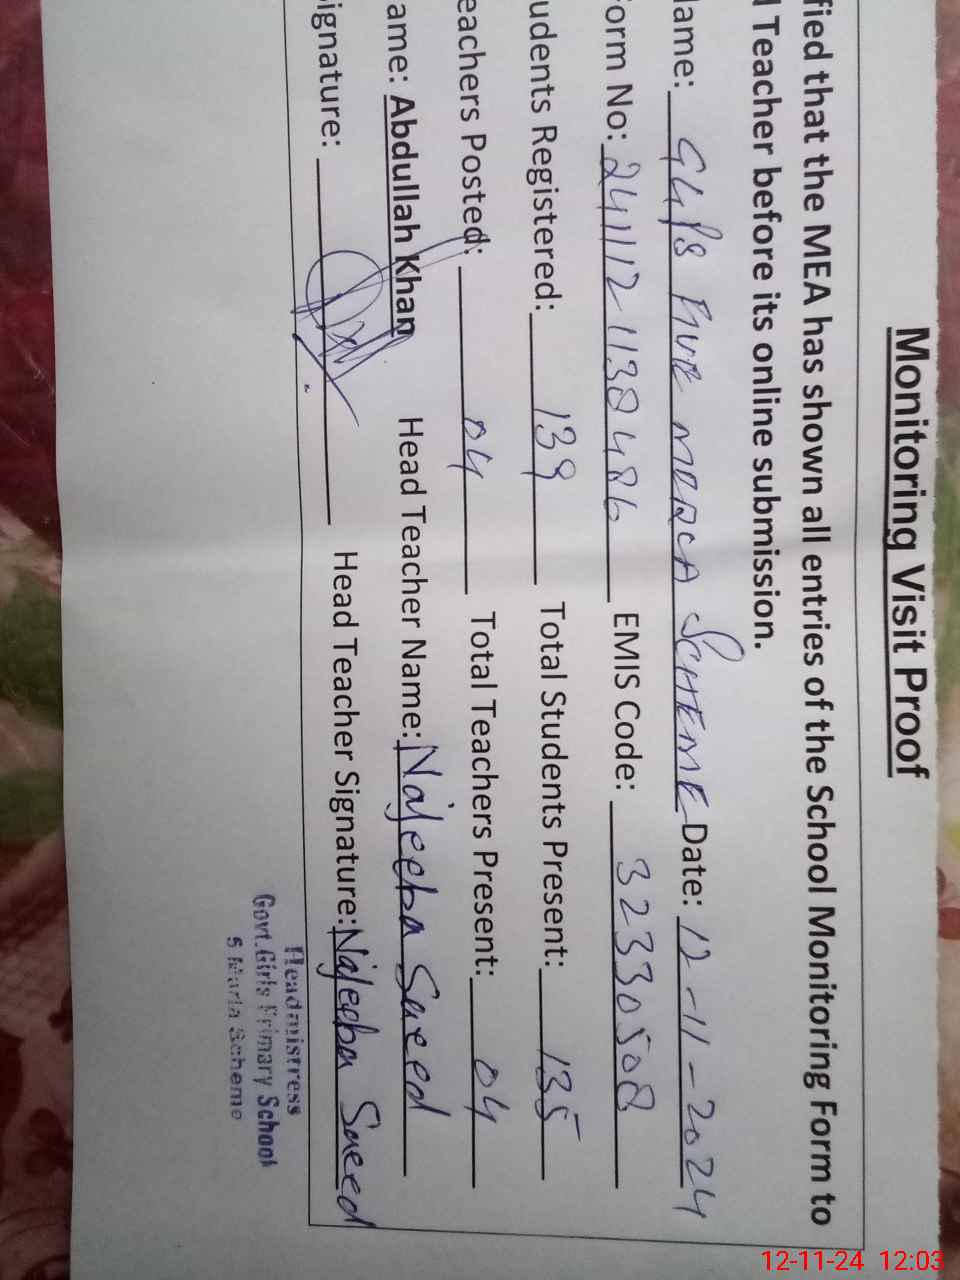 Monitoring Visit Proof
fied that the MEA has shown all entries of the School Monitoring Form to
Teacher before its online submission.
ame: GGPS FIVE MARLA SCHEME Date: 12-11-2024
orm No: 241112113848 6 EMIS Code: 32330508
udents Registered: 139 Total Students Present: 135
eachers Posted: 04 Total Teachers Present: 04
ame: Abdullah Khan Head Teacher Name: Najeeba Saeed
ignature: Head Teacher Signature: Najeeba Saeed
Headmistress
Govt.Girls Primary School
5 Marla Scheme
12-11-24 12:03